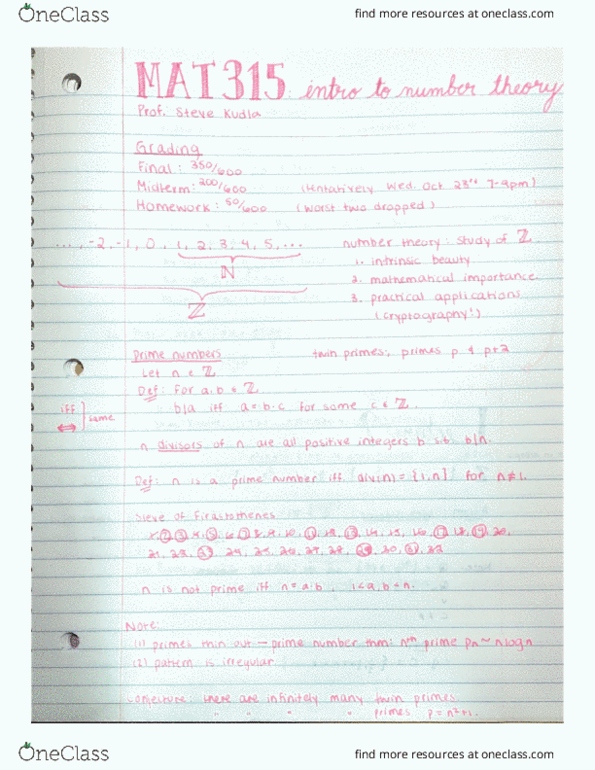 OneClass
find more resources at oneclass.com
MAT315: intro to number theory
Prof. Steve Kudla
Grading
Final: 350/600
Midterm: 200/600 (tentatively Wed. Oct. 23rd 7-9pm)
Homework: 50/600 (worst two dropped)
..., -2, -1, 0, 1, 2, 3, 4, 5, ...
ℕ
ℤ
number theory: study of ℤ
1. intrinsic beauty
2. mathematical importance
3. practical applications
(cryptography!)
Prime numbers
twin primes: primes p & p+2
Let n ∈ ℤ
Def: For a, b ∈ ℤ
b|a iff a = b·c for some c ∈ ℤ.
iff
⇔
same
n divisors of n are all positive integers b s.t. b|n.
Def: n is a prime number iff div(n) = {1, n} for n≠1.
Sieve of
1, 2, 3, 4, 5, 6, 7, 8, 9, 10, 11, 12, 13, 14, 15, 16, 17, 18, 19, 20,
21, 22, 23, 24, 25, 26, 27, 28, 29, 30, 31, 32
n is not prime iff n=a·b, 1<a,b<n.
Note:
(1) primes thin out - prime number thm: nth prime pn ~ nlogn
(2) pattern is irregular
conjecture: there are infinitely many twin primes.
" " " " primes p=n²+1.
OneClass
find more resources at oneclass.com